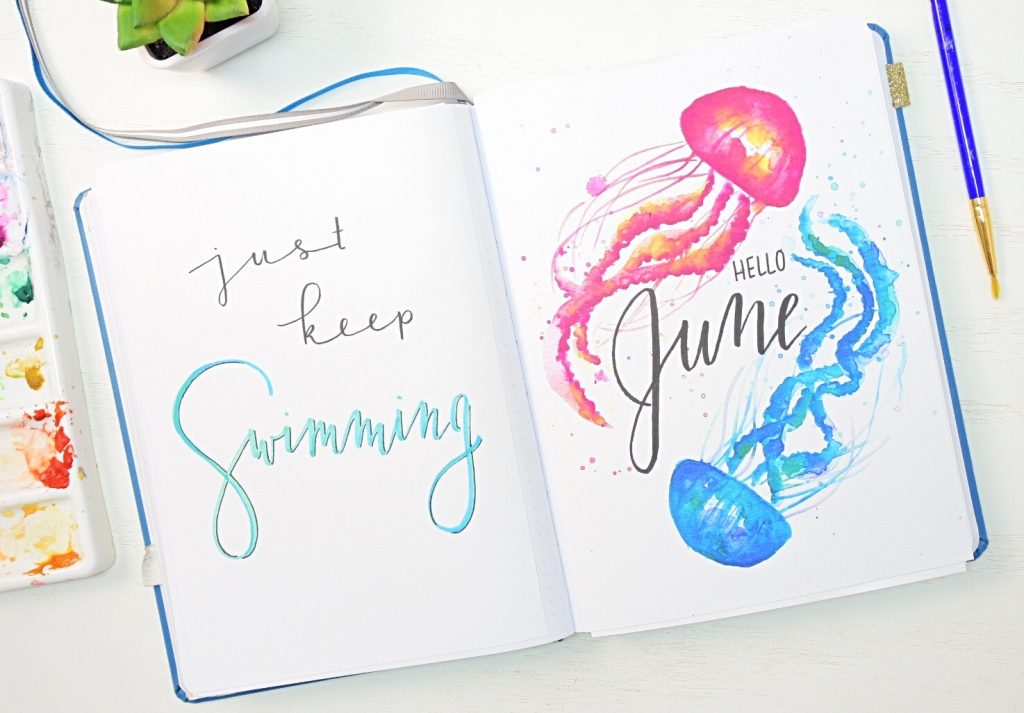 just
keep
Swimming
HELLO
June